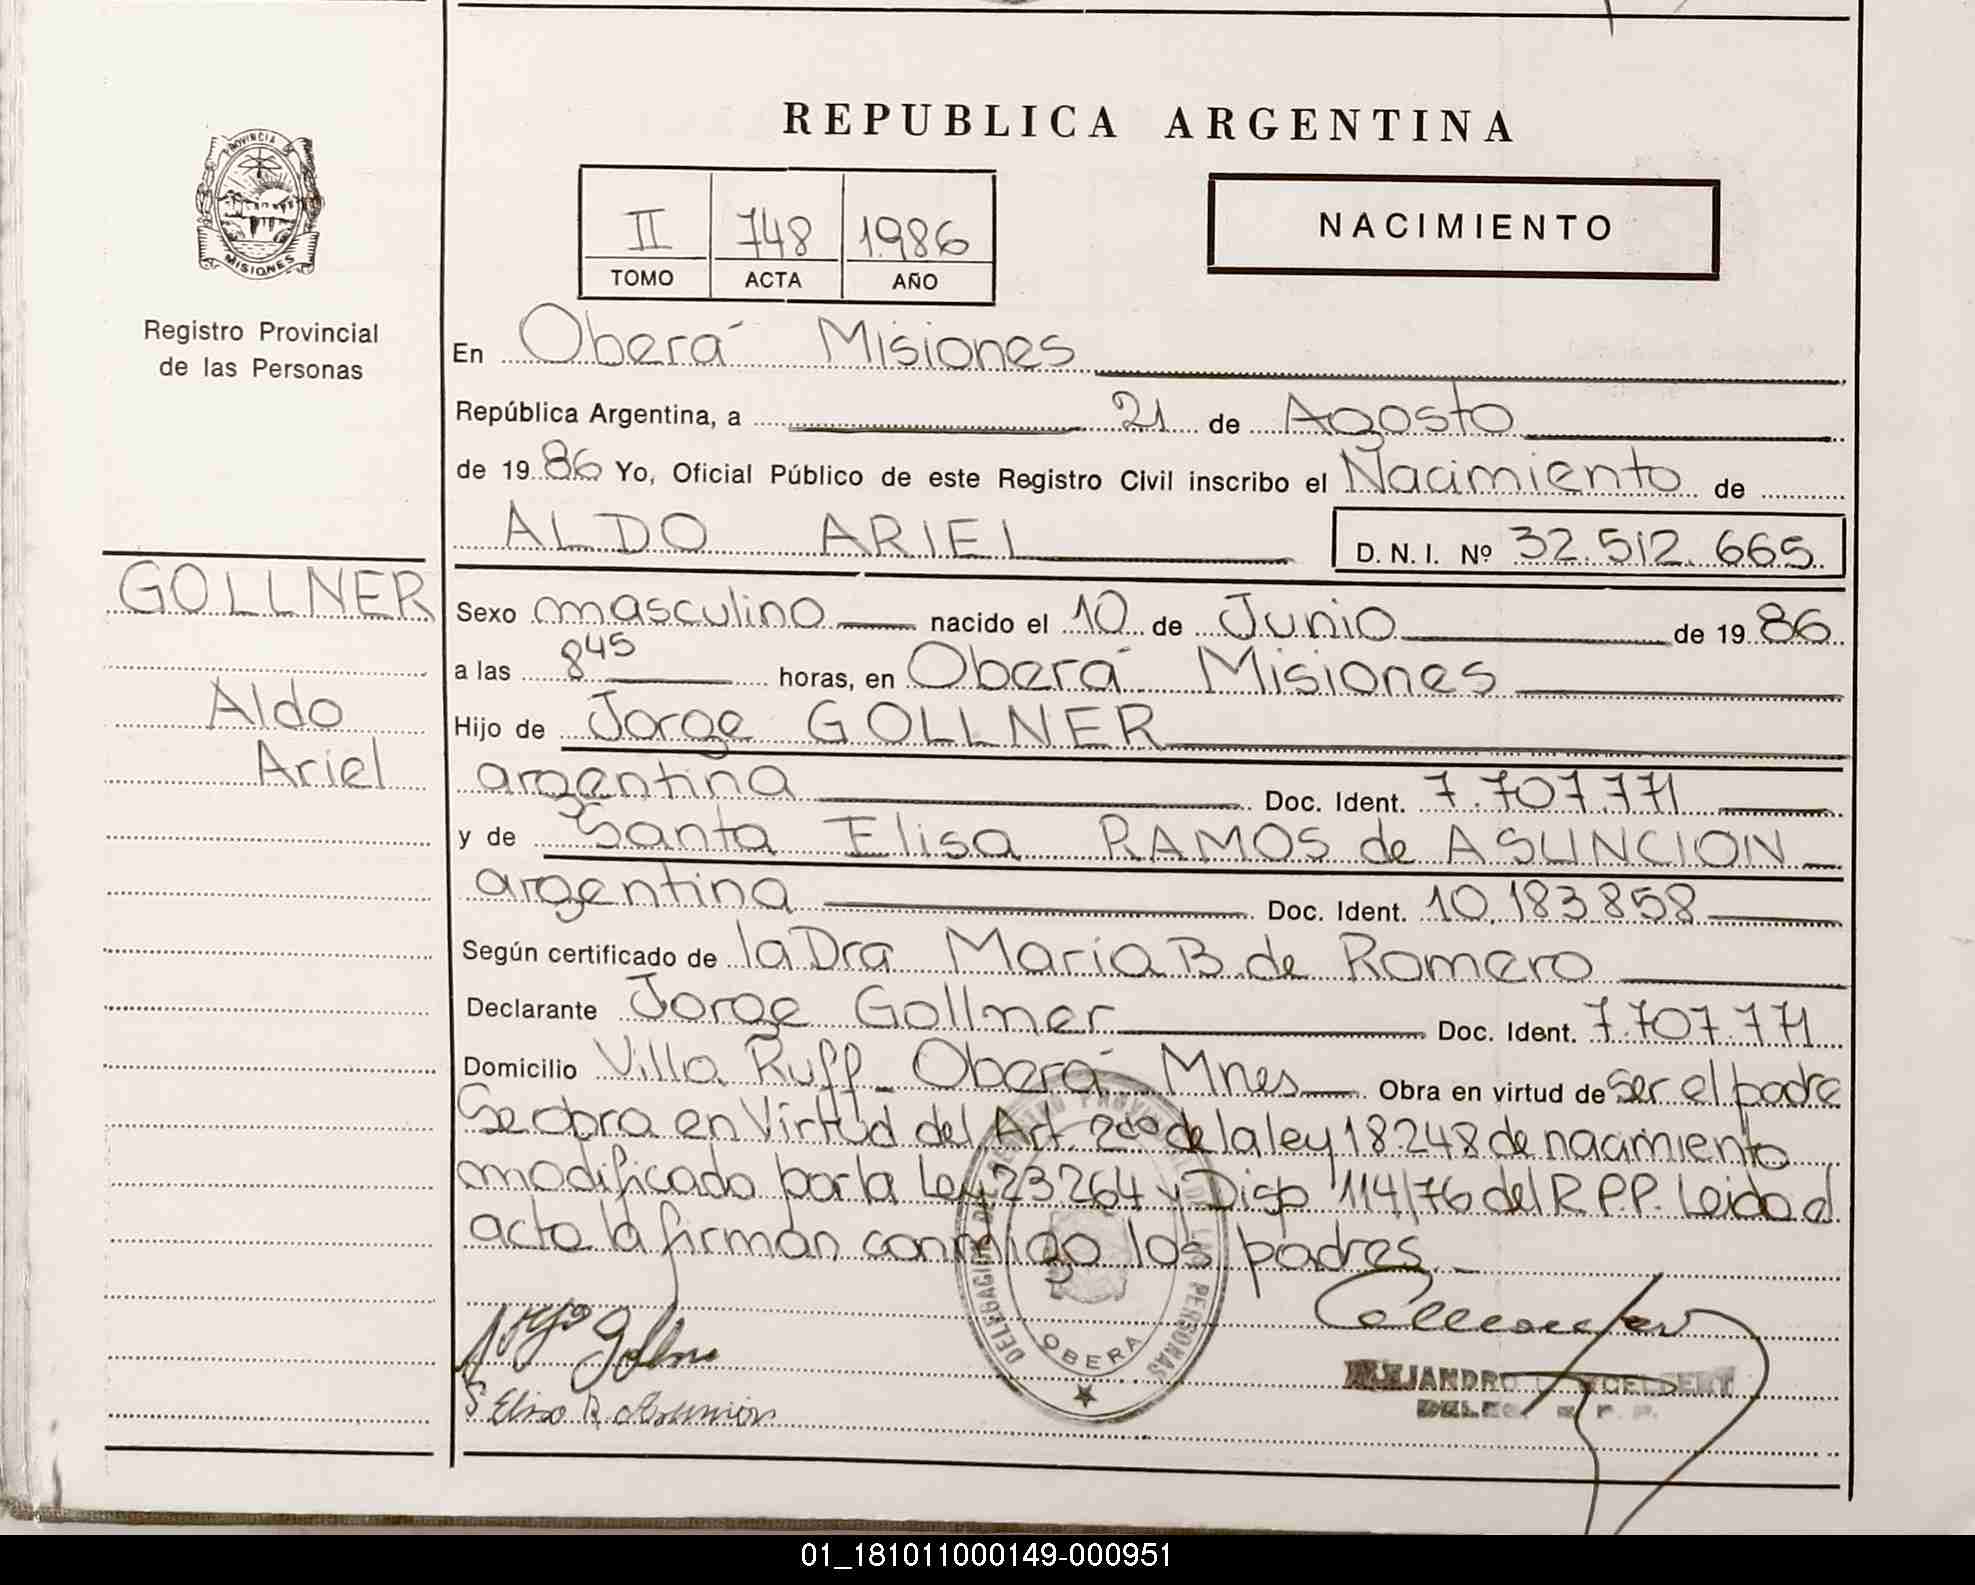 REPUBLICA ARGENTINA
PROVINCIA DE
MISIONES
Registro Provincial
de las Personas
II 748 1986
TOMO ACTA AÑO
NACIMIENTO
En Oberá Misiones
República Argentina, a 21 de Agosto
de 19 86 Yo, Oficial Público de este Registro Civil inscribo el Nacimiento de
ALDO ARIEL D. N. I. Nº 32.512.665
GOLLNER
Aldo
Ariel
Sexo masculino nacido el 10 de Junio de 19 86
a las 8 45 horas, en Oberá Misiones
Hijo de Jorge GOLLNER
argentina Doc. Ident. 7.707.771
y de Santa Elisa RAMOS de ASUNCION
argentina Doc. Ident. 10.183.858
Según certificado de la Dra Maria B. de Romero
Declarante Jorge Gollner Doc. Ident. 7.707.771
Domicilio Villa Ruff - Oberá - Mnes Obra en virtud de ser el padre
Se obra en Virtud del Art. 2do de la ley 18248 de nacimiento
modificado por la Ley 23264 y Disp 114/76 del R.P.P. Leido el
acta la firman conmigo los padres.-
DELEGACION DEL REGISTRO PROVINCIAL DE LAS PERSONAS
OBERA
Jorge Gollner
S Elisa R de Asuncion
ALEJANDRO
01_181011000149-000951